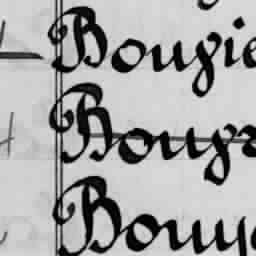 Bougie
Bougr
Bouy